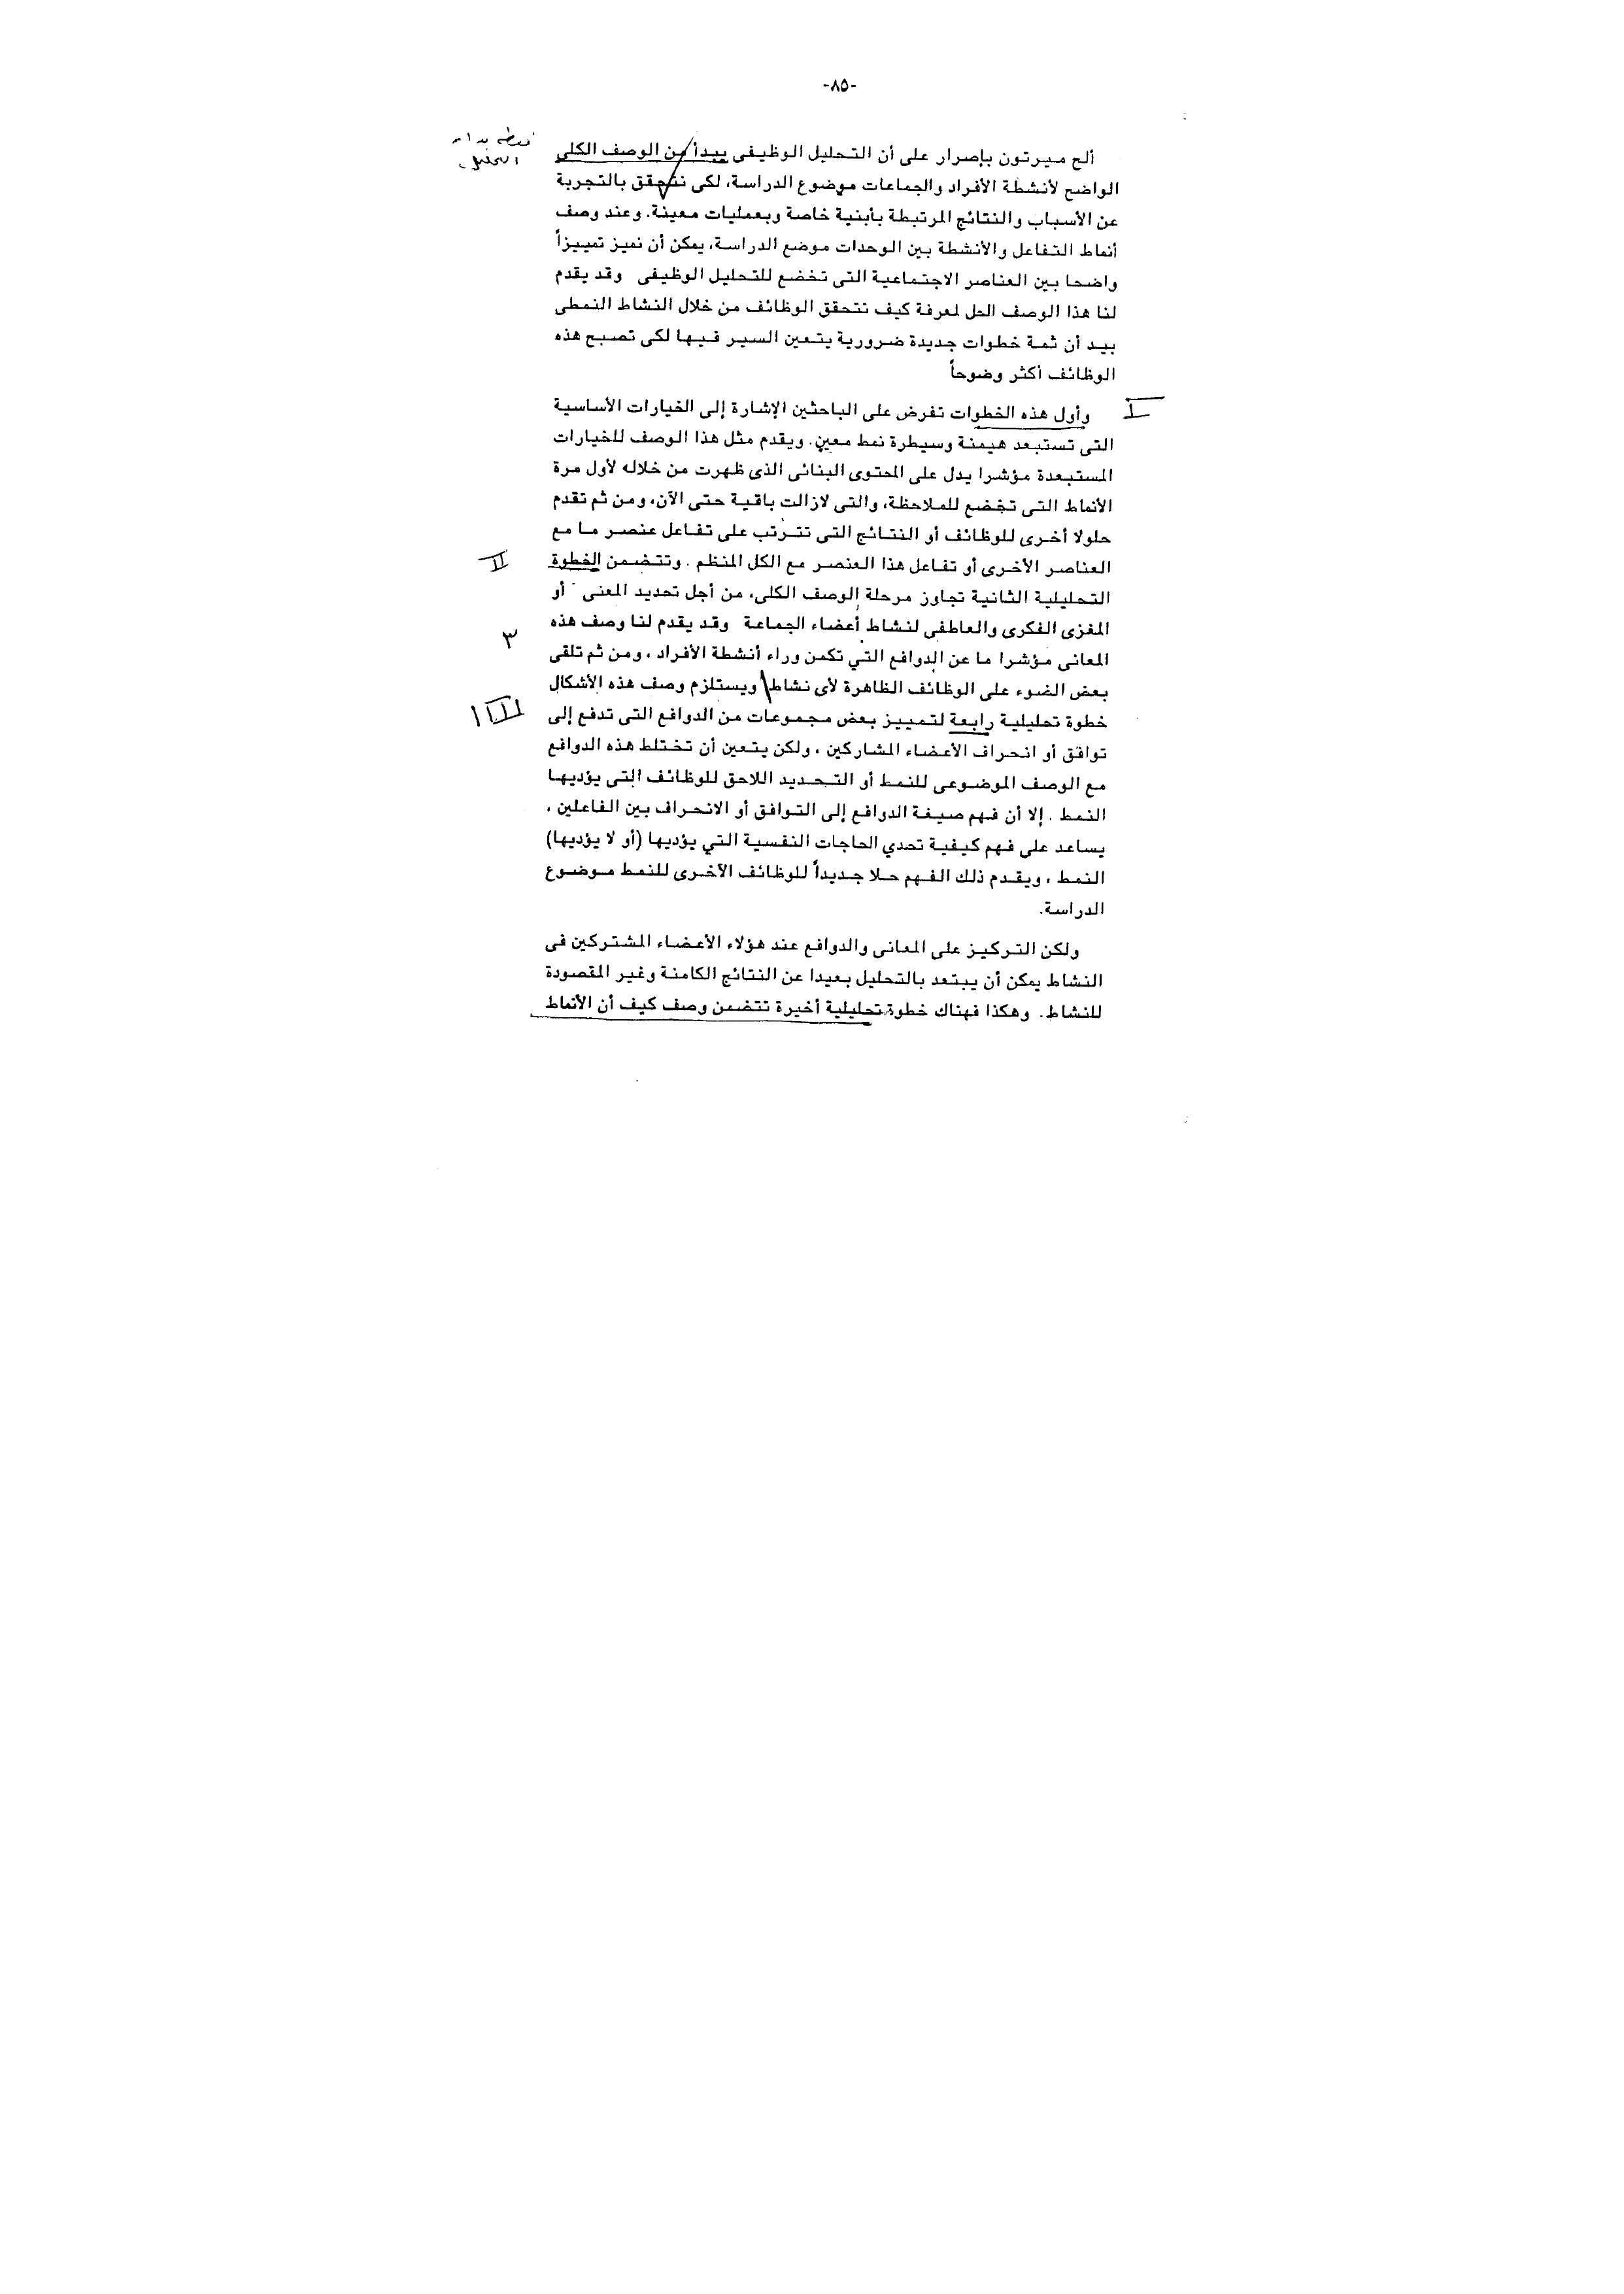 -٨٥-
ألح ميرتون بإصرار على أن التحليل الوظيفى يبدأ من الوصف الكلى
الواضح لأنشطة الأفراد والجماعات موضوع الدراسة، لكى نتحقق بالتجربة
عن الأسباب والنتائج المرتبطة بأبنية خاصة وبعمليات معينة. وعند وصف
أنماط التفاعل والأنشطة بين الوحدات موضع الدراسة، يمكن أن نميز تمييزاً
واضحا بين العناصر الاجتماعية التى تخضع للتحليل الوظيفى وقد يقدم
لنا هذا الوصف الحل لمعرفة كيف تتحقق الوظائف من خلال النشاط النمطى
بيد أن ثمة خطوات جديدة ضرورية يتعين السير فيها لكى تصبح هذه
الوظائف أكثر وضوحاً
I
وأول هذه الخطوات تفرض على الباحثين الإشارة إلى الخيارات الأساسية
التى تستبعد هيمنة وسيطرة نمط معين. ويقدم مثل هذا الوصف للخيارات
المستبعدة مؤشرا يدل على المحتوى البنائى الذى ظهرت من خلاله لأول مرة
الأنماط التى تخضع للملاحظة، والتى لازالت باقية حتى الآن، ومن ثم تقدم
حلولا أخرى للوظائف أو النتائج التى تترتب على تفاعل عنصر ما مع
العناصر الأخرى أو تفاعل هذا العنصر مع الكل المنظم . وتتضمن الخطوة
II
التحليلية الثانية تجاوز مرحلة الوصف الكلى، من أجل تحديد المعنى أو
المغزى الفكرى والعاطفى لنشاط أعضاء الجماعة وقد يقدم لنا وصف هذه
٣
المعانى مؤشرا ما عن الدوافع التي تكمن وراء أنشطة الأفراد ، ومن ثم تلقى
بعض الضوء على الوظائف الظاهرة لأى نشاط ويستلزم وصف هذه الأشكال
خطوة تحليلية رابعة لتمييز بعض مجموعات من الدوافع التى تدفع إلى
توافق أو انحراف الأعضاء المشاركين ، ولكن يتعين أن تختلط هذه الدوافع
مع الوصف الموضوعى للنمط أو التحديد اللاحق للوظائف التى يؤديها
النمط . إلا أن فهم صيغة الدوافع إلى التوافق أو الانحراف بين الفاعلين ،
يساعد على فهم كيفية تحدي الحاجات النفسية التي يؤديها (أو لا يؤديها)
النمط ، ويقدم ذلك الفهم حلا جديداً للوظائف الآخرى للنمط موضوع
الدراسة.
ولكن التركيز على المعانى والدوافع عند هؤلاء الأعضاء المشتركين فى
النشاط يمكن أن يبتعد بالتحليل بعيدا عن النتائج الكامنة وغير المقصودة
للنشاط. وهكذا فهناك خطوة تحليلية أخيرة تتضمن وصف كيف أن الأنماط